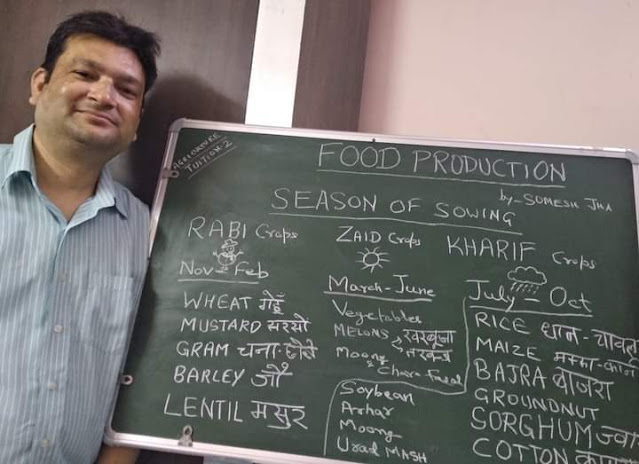 AGRICULTURE
TUITION-2
FOOD PRODUCTION
by - SOMESH JHA
SEASON OF SOWING
RABI Crops
Nov - Feb
WHEAT गेहूँ
MUSTARD सरसों
GRAM चना-छोले
BARLEY जौ
LENTIL मसूर
ZAID Crops
March - June
Vegetables
MELONS खरबूजा
तरबूज
Moong & Chara Fasal
KHARIF Crops
July - Oct
RICE धान - चावल
MAIZE मक्का
BAJRA बाजरा
GROUNDNUT
SORGHUM ज्वा
COTTON
Soybean
Arhar
Moong
Urad MASH